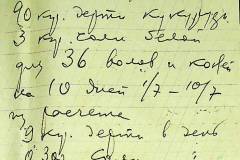 90 кг. дерти кукурузы
3 кг. соли белой
для 36 волов и коней
на 10 дней 1/7 – 10/7
из расчета
9 кг. дерти в день
0,30